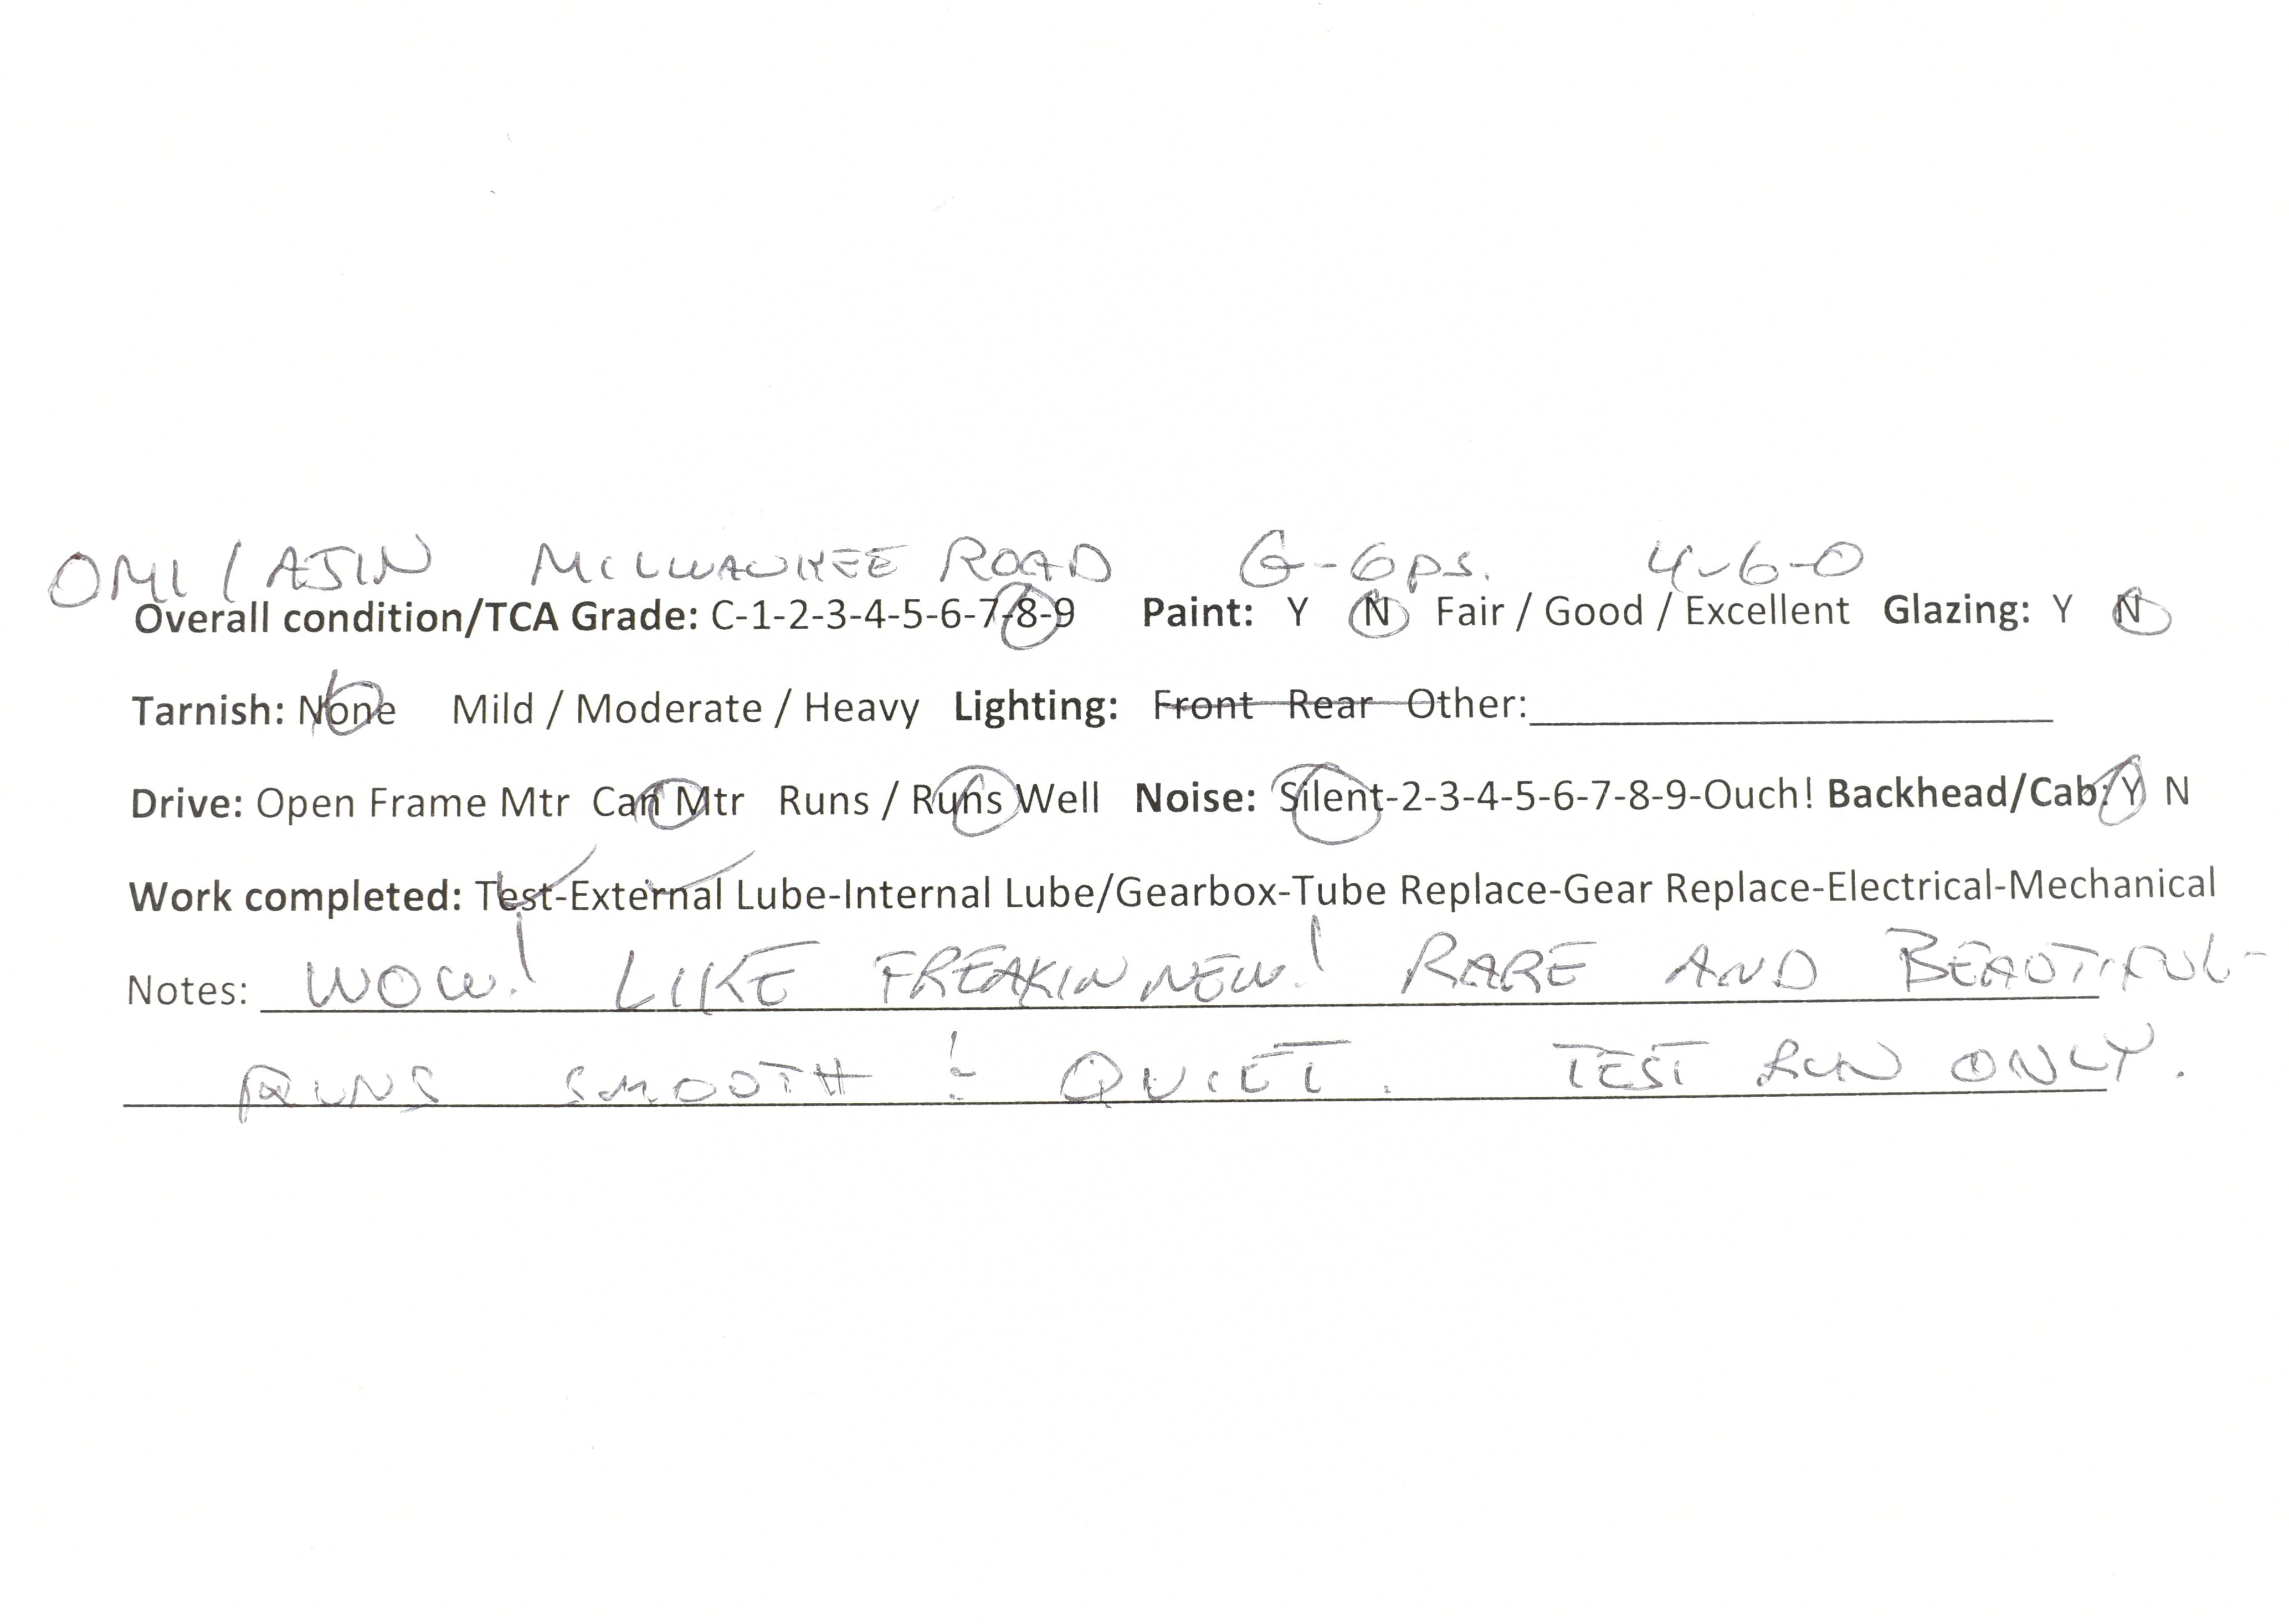 OMI / AJIN MILWAUKEE ROAD G-6ps. 4-6-0
Overall condition/TCA Grade: C-1-2-3-4-5-6-7-8-9 Paint: Y N Fair / Good / Excellent Glazing: Y N
Tarnish: None Mild / Moderate / Heavy Lighting: Front Rear Other:
Drive: Open Frame Mtr Can Mtr Runs / Runs Well Noise: Silent-2-3-4-5-6-7-8-9-Ouch! Backhead/Cab: Y N
Work completed: Test-External Lube-Internal Lube/Gearbox-Tube Replace-Gear Replace-Electrical-Mechanical
Notes: WOW! LIKE FREAKIN NEW! RARE AND BEAUTIFUL-
RUNS SMOOTH & QUIET. TEST RUN ONLY.